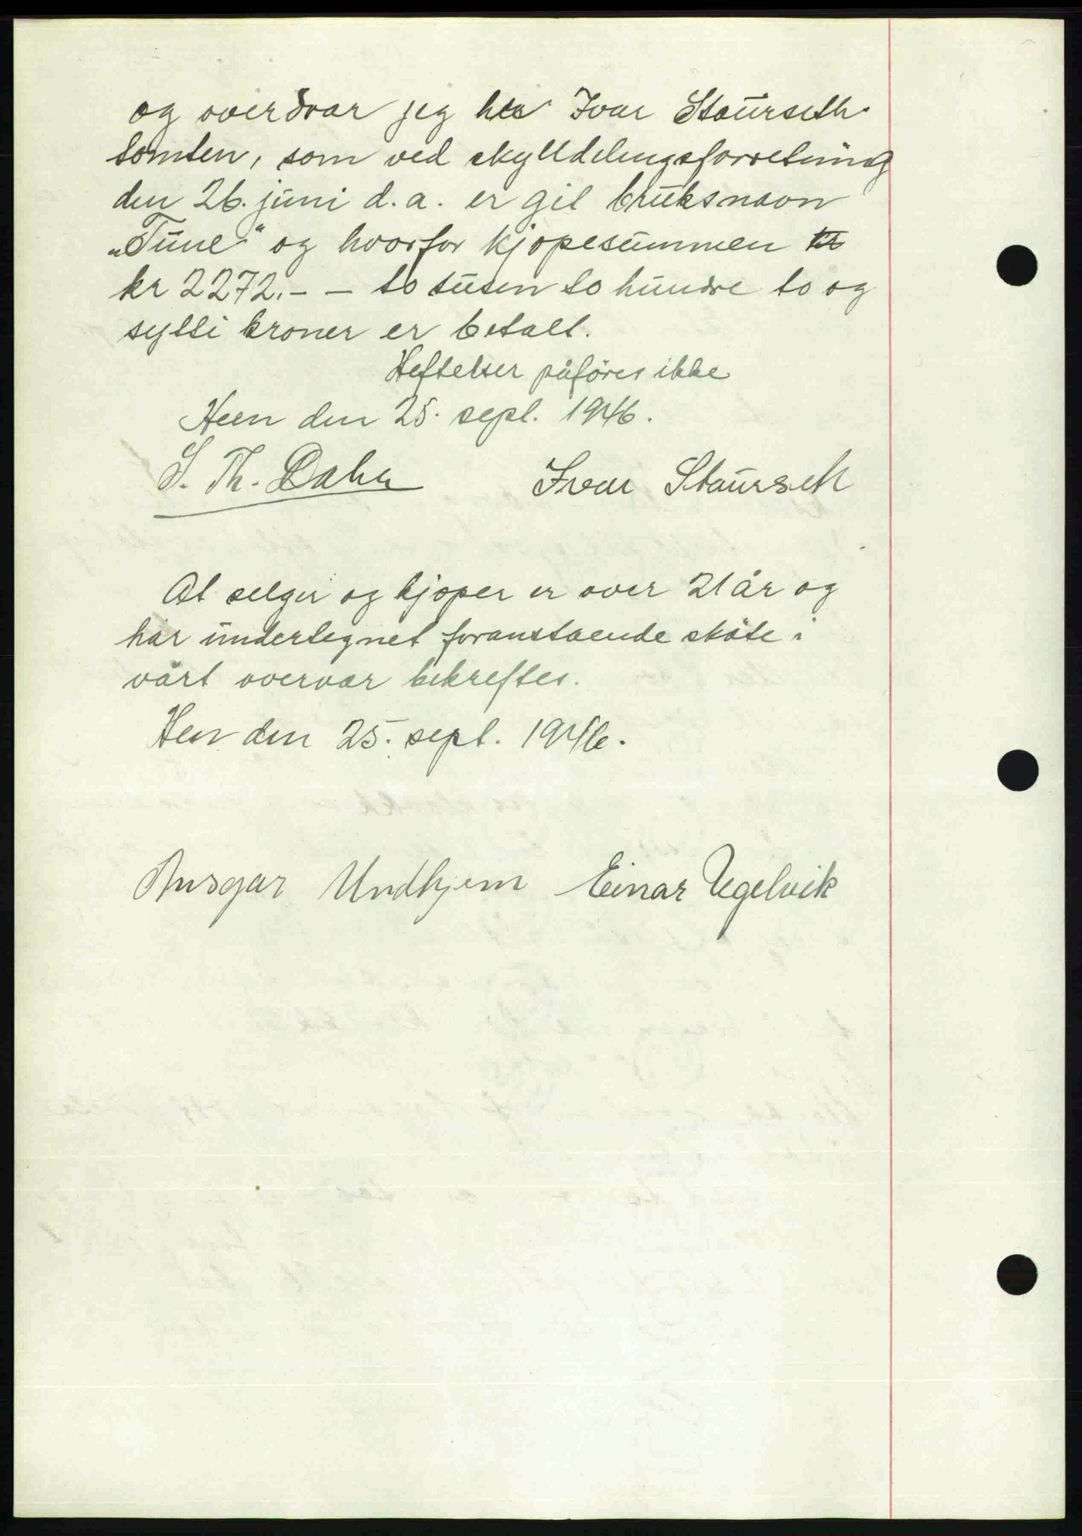 og overdrar jeg hr Ivar Staurseth
tomten, som ved skylddelingsforretning
den 26. juni d.a. er git bruksnavn
„Tune" og hvorfor kjøpesummen
kr 2272.- – to tusen to hundre to og
sytti kroner er betalt.
Heftelser påføres ikke
Hen den 25. sept. 1946.
S. Th. Dahle Ivar Staurseth
At selger og kjøper er over 21 år og
har undertegnet foranstaende skøte i
vårt overvær bekreftes.
Hen den 25. sept. 1946.
Ansgar Undhjem Einar Ugelvik